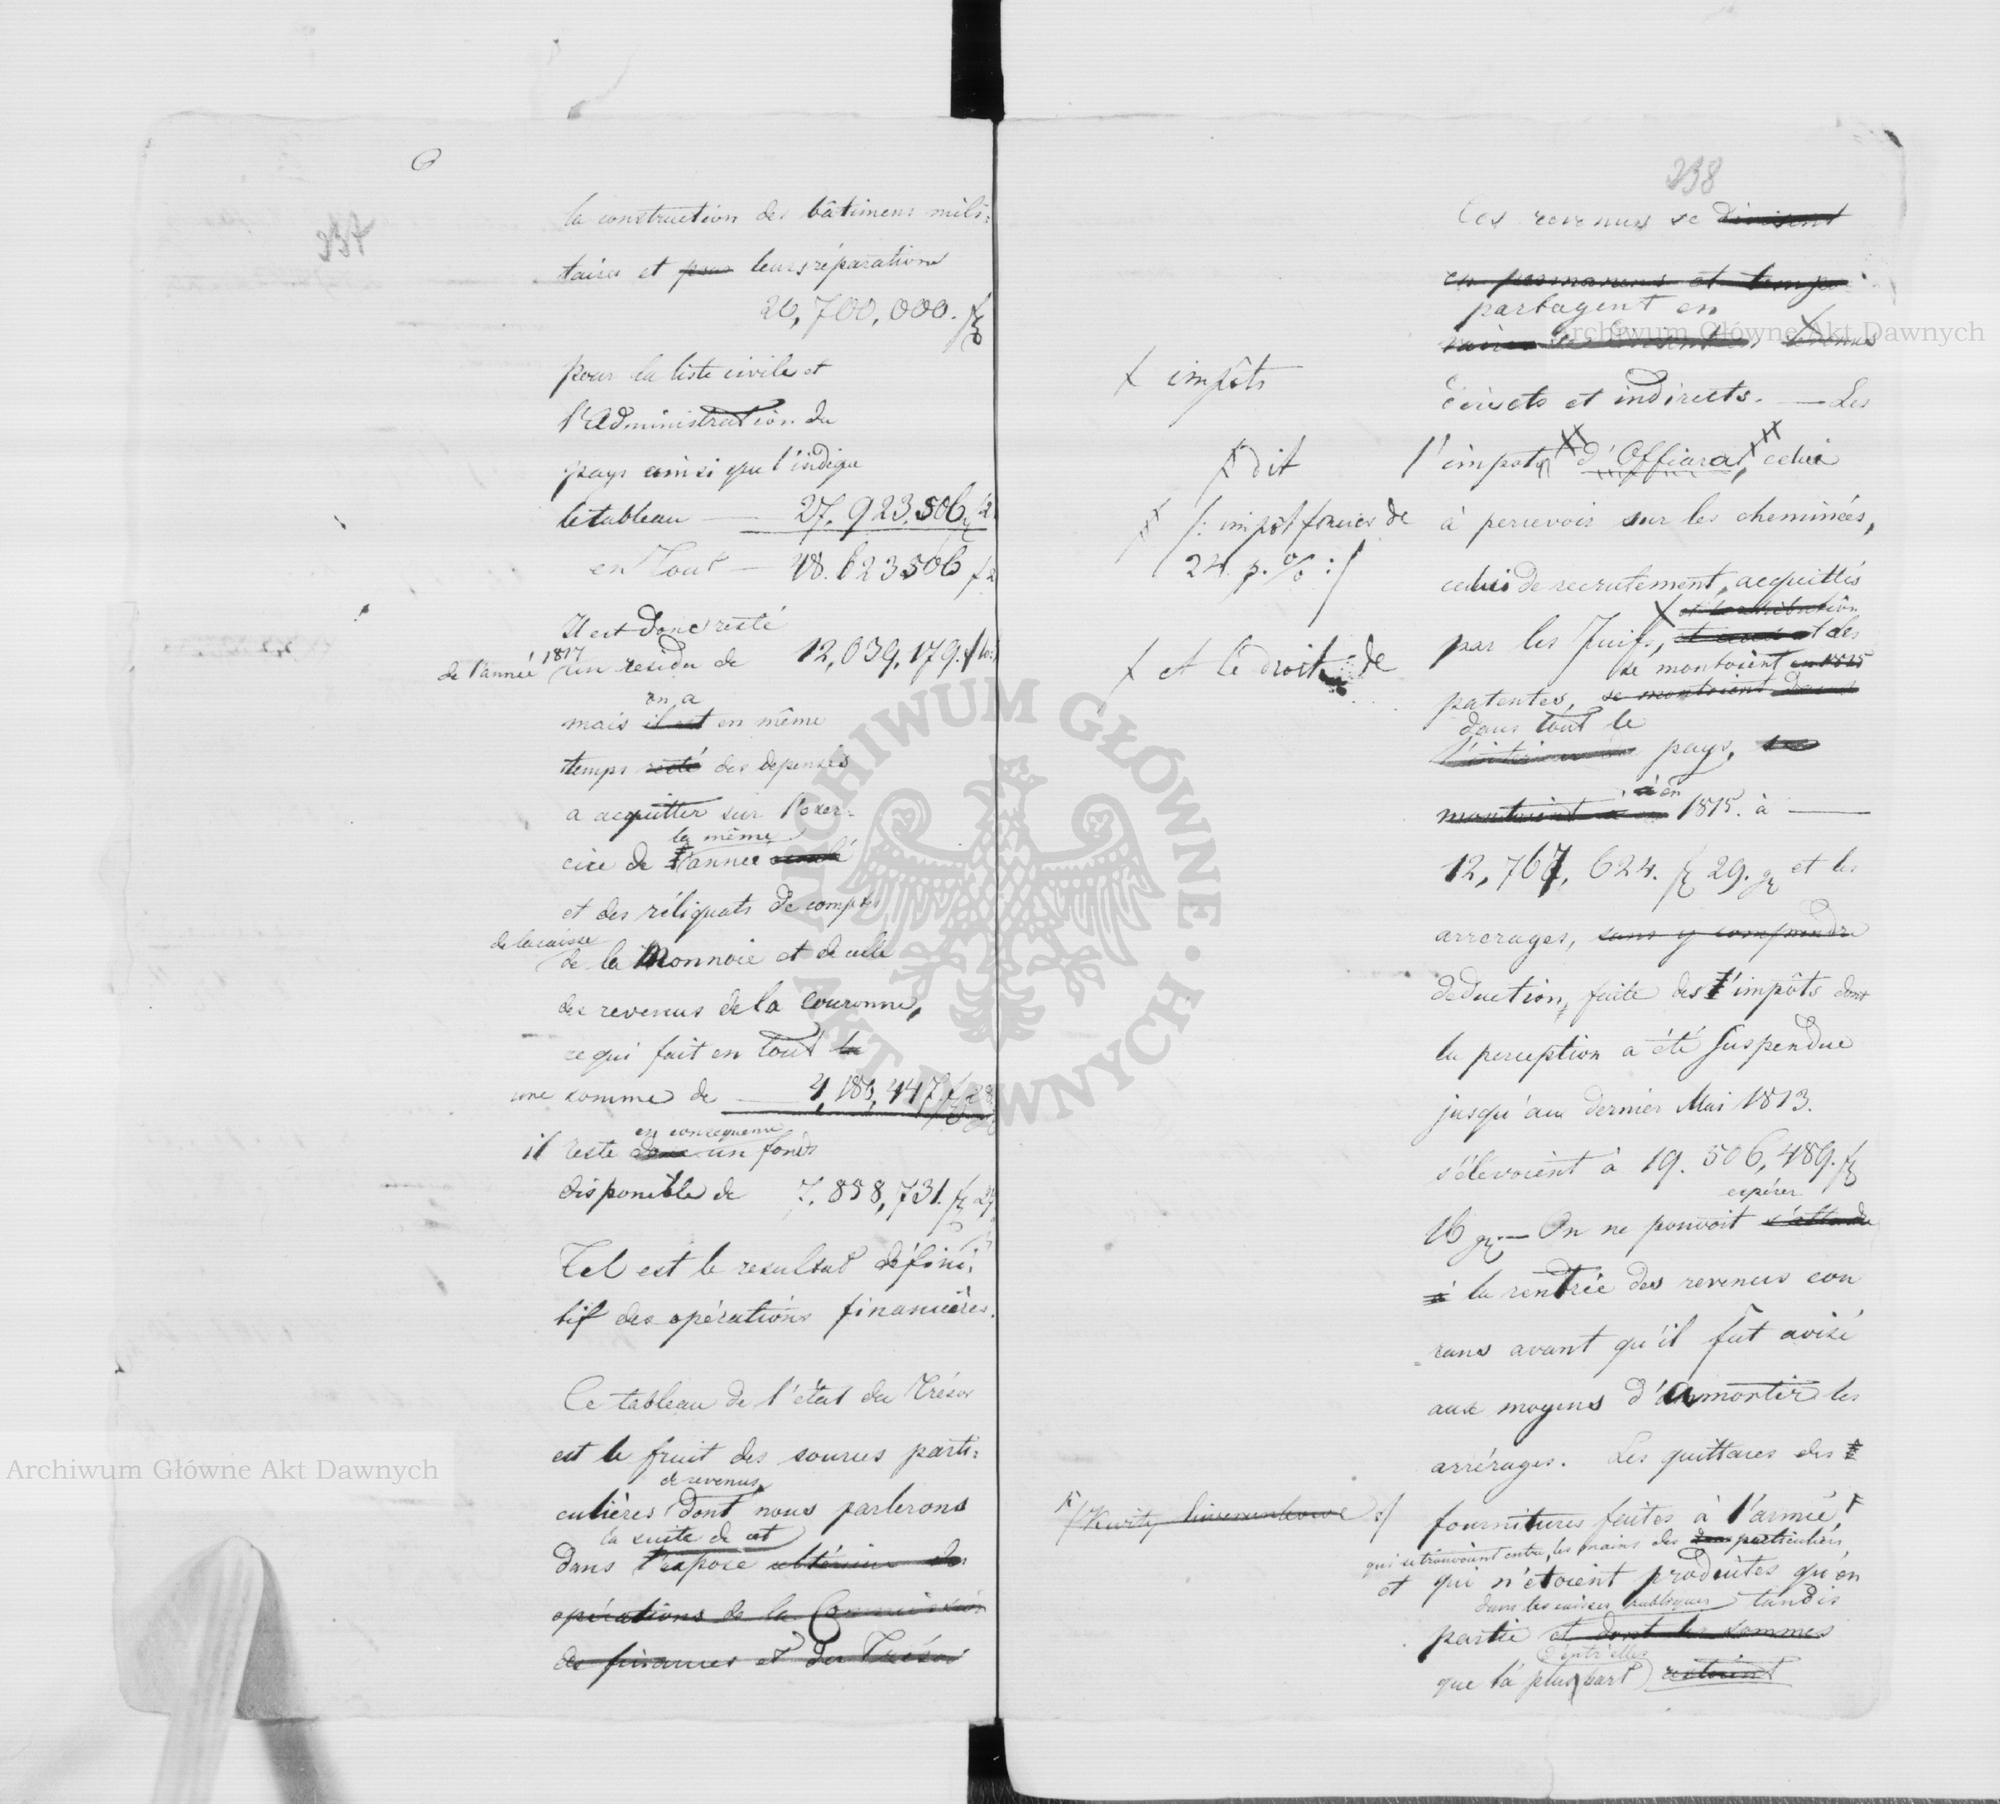 237
la construction des bâtimens mili:
taires et pour leurs réparations
20,700,000. f
pour la liste civile et
l'Administration du
pays ainsi que l'indique
le tableau — 27.923.506 f 2
en Tout — 48.623.506 f 2
Il est donc resté
de l'année 1817 un residu de 12,039,179. f
on a
mais il est en même
temps resté des depenses
a acquitter sur l'exer=
la même
cice de l'année
et des réliquats de comptes
de la caisse
de la Monnoie et de celle
des revenus de la Couronne,
ce qui fait en tout la
une somme de — 4,180,447 f 28
en consequence
il reste donc un fonds
disponible de 7,858,731. f 27
Tel est le resultat défini:
tif des opérations financières.
Ce tableau de l'état du Trésor
est le fruit des sources parti:
de revenus
culières dont nous parlerons
la suite de cet
dans l'exposé ultérieur des
opérations de la Commission
de finances et du Trésor
238
Ces revenus se divisent
en permanens et tempo
partagent en
revenus
impôts
directs et indirects. — Les
dit
l'impots d'Offiara, celui
/: impôt foncier de
24 p. % :/
à percevoir sur les cheminées,
celui de recrutement, acquittés
et contribution
par les Juifs, et des
et le droit de
se montoient en 1815
patentes, se montoient dans
dans tout le
l'intérieur du pays,
en
montoient à 1815. à —
12,767,624. f 29. g et les
arrerages, sans y comprendre
deduction, faite des l'impôts dont
la perception a été suspendue
jusqu'au dernier Mai 1813.
s'élevoient à 19.506,489. f
espérer
16 g. — On ne pouvoit s'attendre
à la rentrée des revenus cou
rans avant qu'il fut avisé
aux moyens d'amortir les
arrérages. Les quittances des
/: Kwity liwerunkowe :/
fournitures faites à l'armée,
qui se trouvoient entre les mains des particuliers,
et qui n'étoient produites qu'en
dans les caisses publiques tandis
partie et dont les sommes
d'entr'elles
que la plus part restoient
Archiwum Główne Akt Dawnych
Archiwum Główne Akt Dawnych
ARCHIWUM GŁÓWNE AKT DAWNYCH